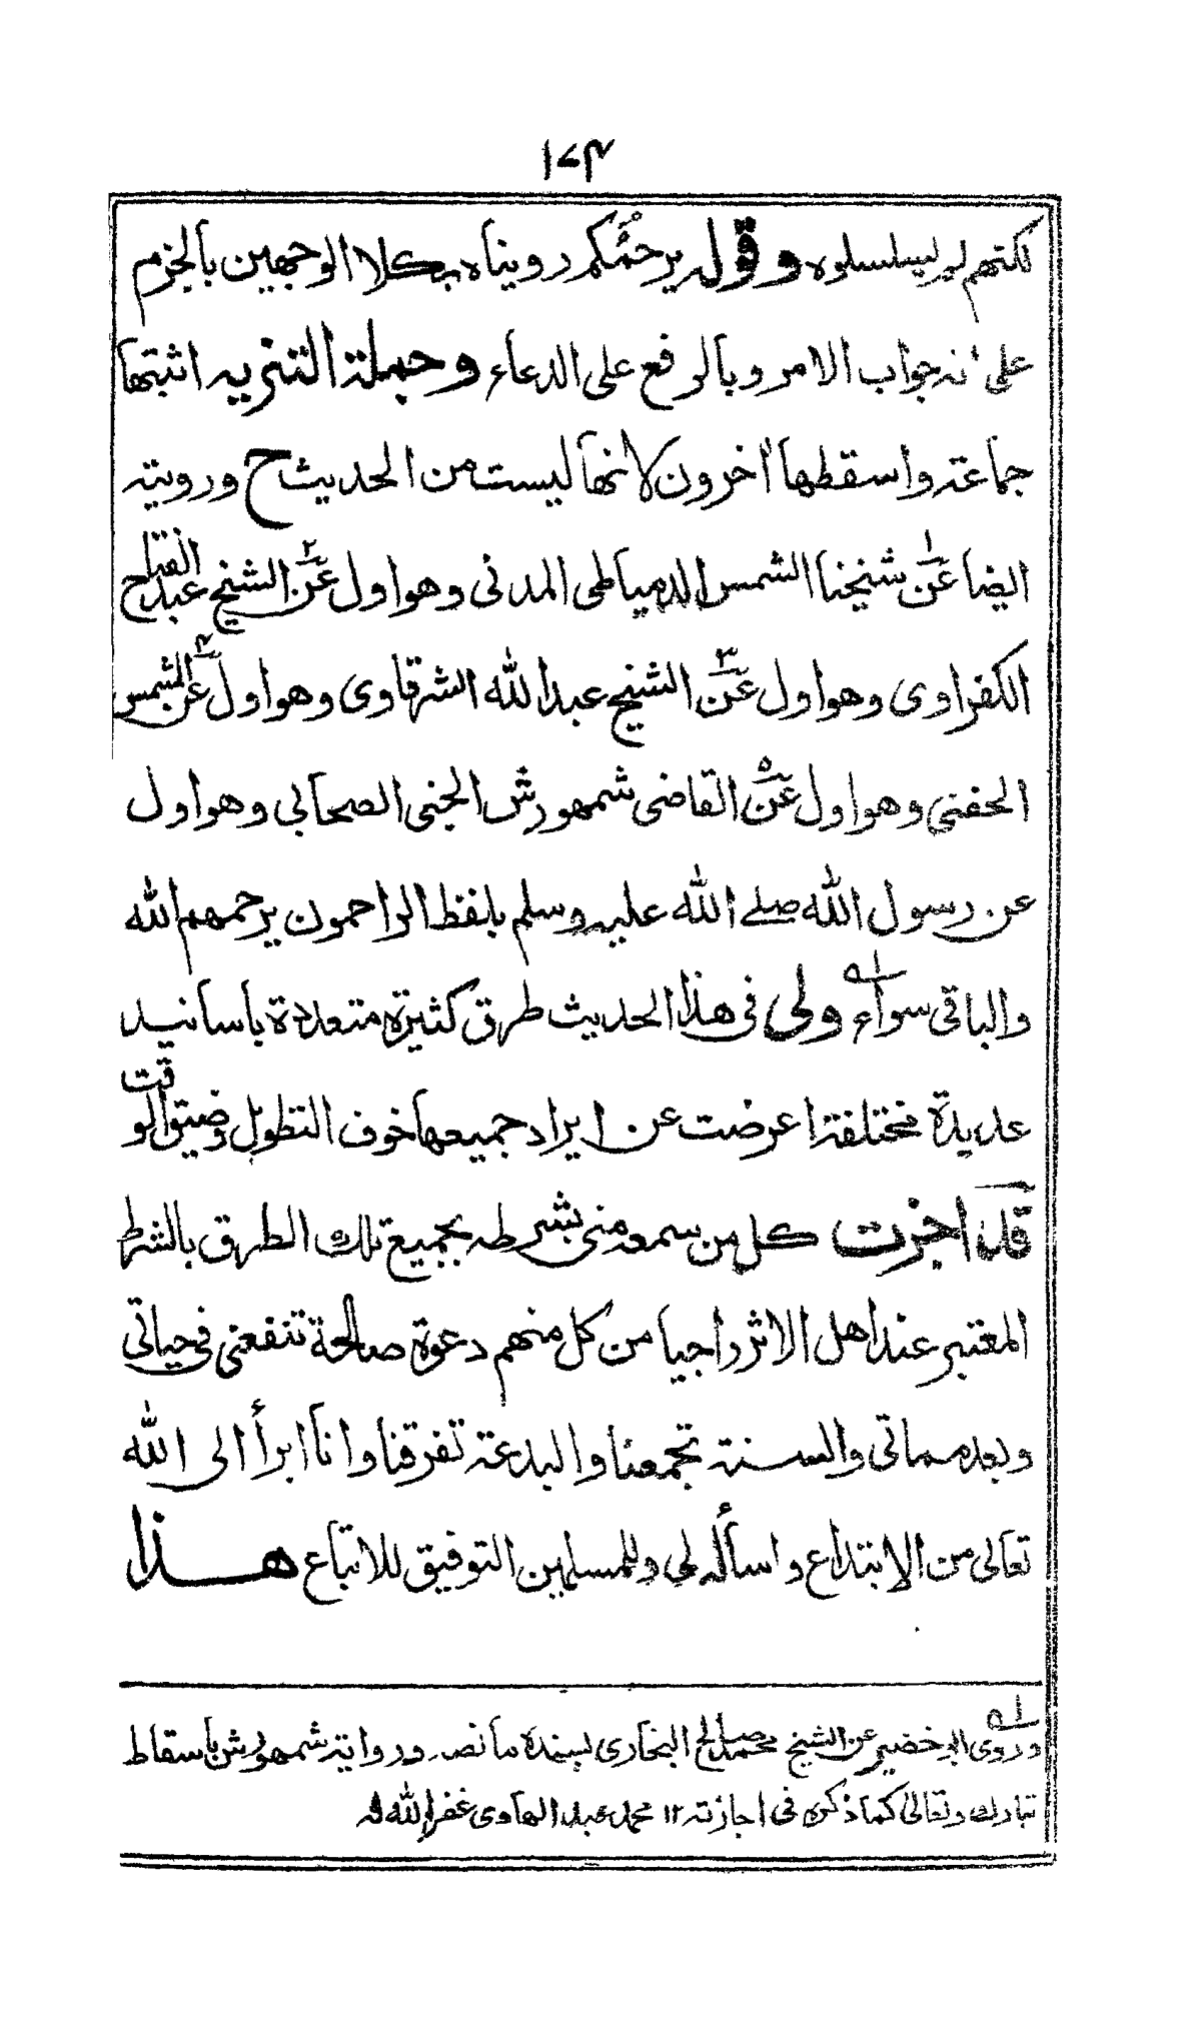 ١٧٣
لكنهم لم يسلسلوه وقوله يرحمكم رويناه بكلا الوجهين بالجزم
على انه جواب الامر وبالرفع على الدعاء وجملة التنزيه اثبتها
جماعة واسقطها اخرون لانها ليست من الحديث ح ورويته
ايضا عن١ شيخنا الشمس الدمياطى المدنى وهو اول عن٢ الشيخ عبد الفتاح
الكفراوى وهو اول عن٣ الشيخ عبد الله الشرقاوى وهو اول عن٤ الشمس
الحفنى وهو اول عن٥ القاضى شمهورش الجنى الصحابى وهو اول
عن رسول الله صلے الله عليه وسلم بلفظ الراحمون يرحمهم الله
والباقى سواء ١ه ولى فى هذا الحديث طرق كثيرة متعددة بأسانيد
عديدة مختلفة اعرضت عن ايراد جميعها خوف التطويل وضيق الوقت
قد اجزت كل من سمعه منى بشرطه بجميع تلك الطرق بالشرط
المعتبر عند اهل الاثر راجيا من كل منهم دعوة صالحة تنفعنى فى حياتى
وبعد مماتى والسنة تجمعنا والبدعة تفرقنا وانا ابرأ الى الله
تعالى من الابتداع واسأله لى وللمسلمين التوفيق للاتباع هذا
١ه وروى ابو خضير عن الشيخ محمد صالح البخارى بسنده ما نصه ورواية شمهورش باسقاط
تبارك وتعالى كما ذكره فى اجازته ١٢ محمد عبد الهادى غفر الله له